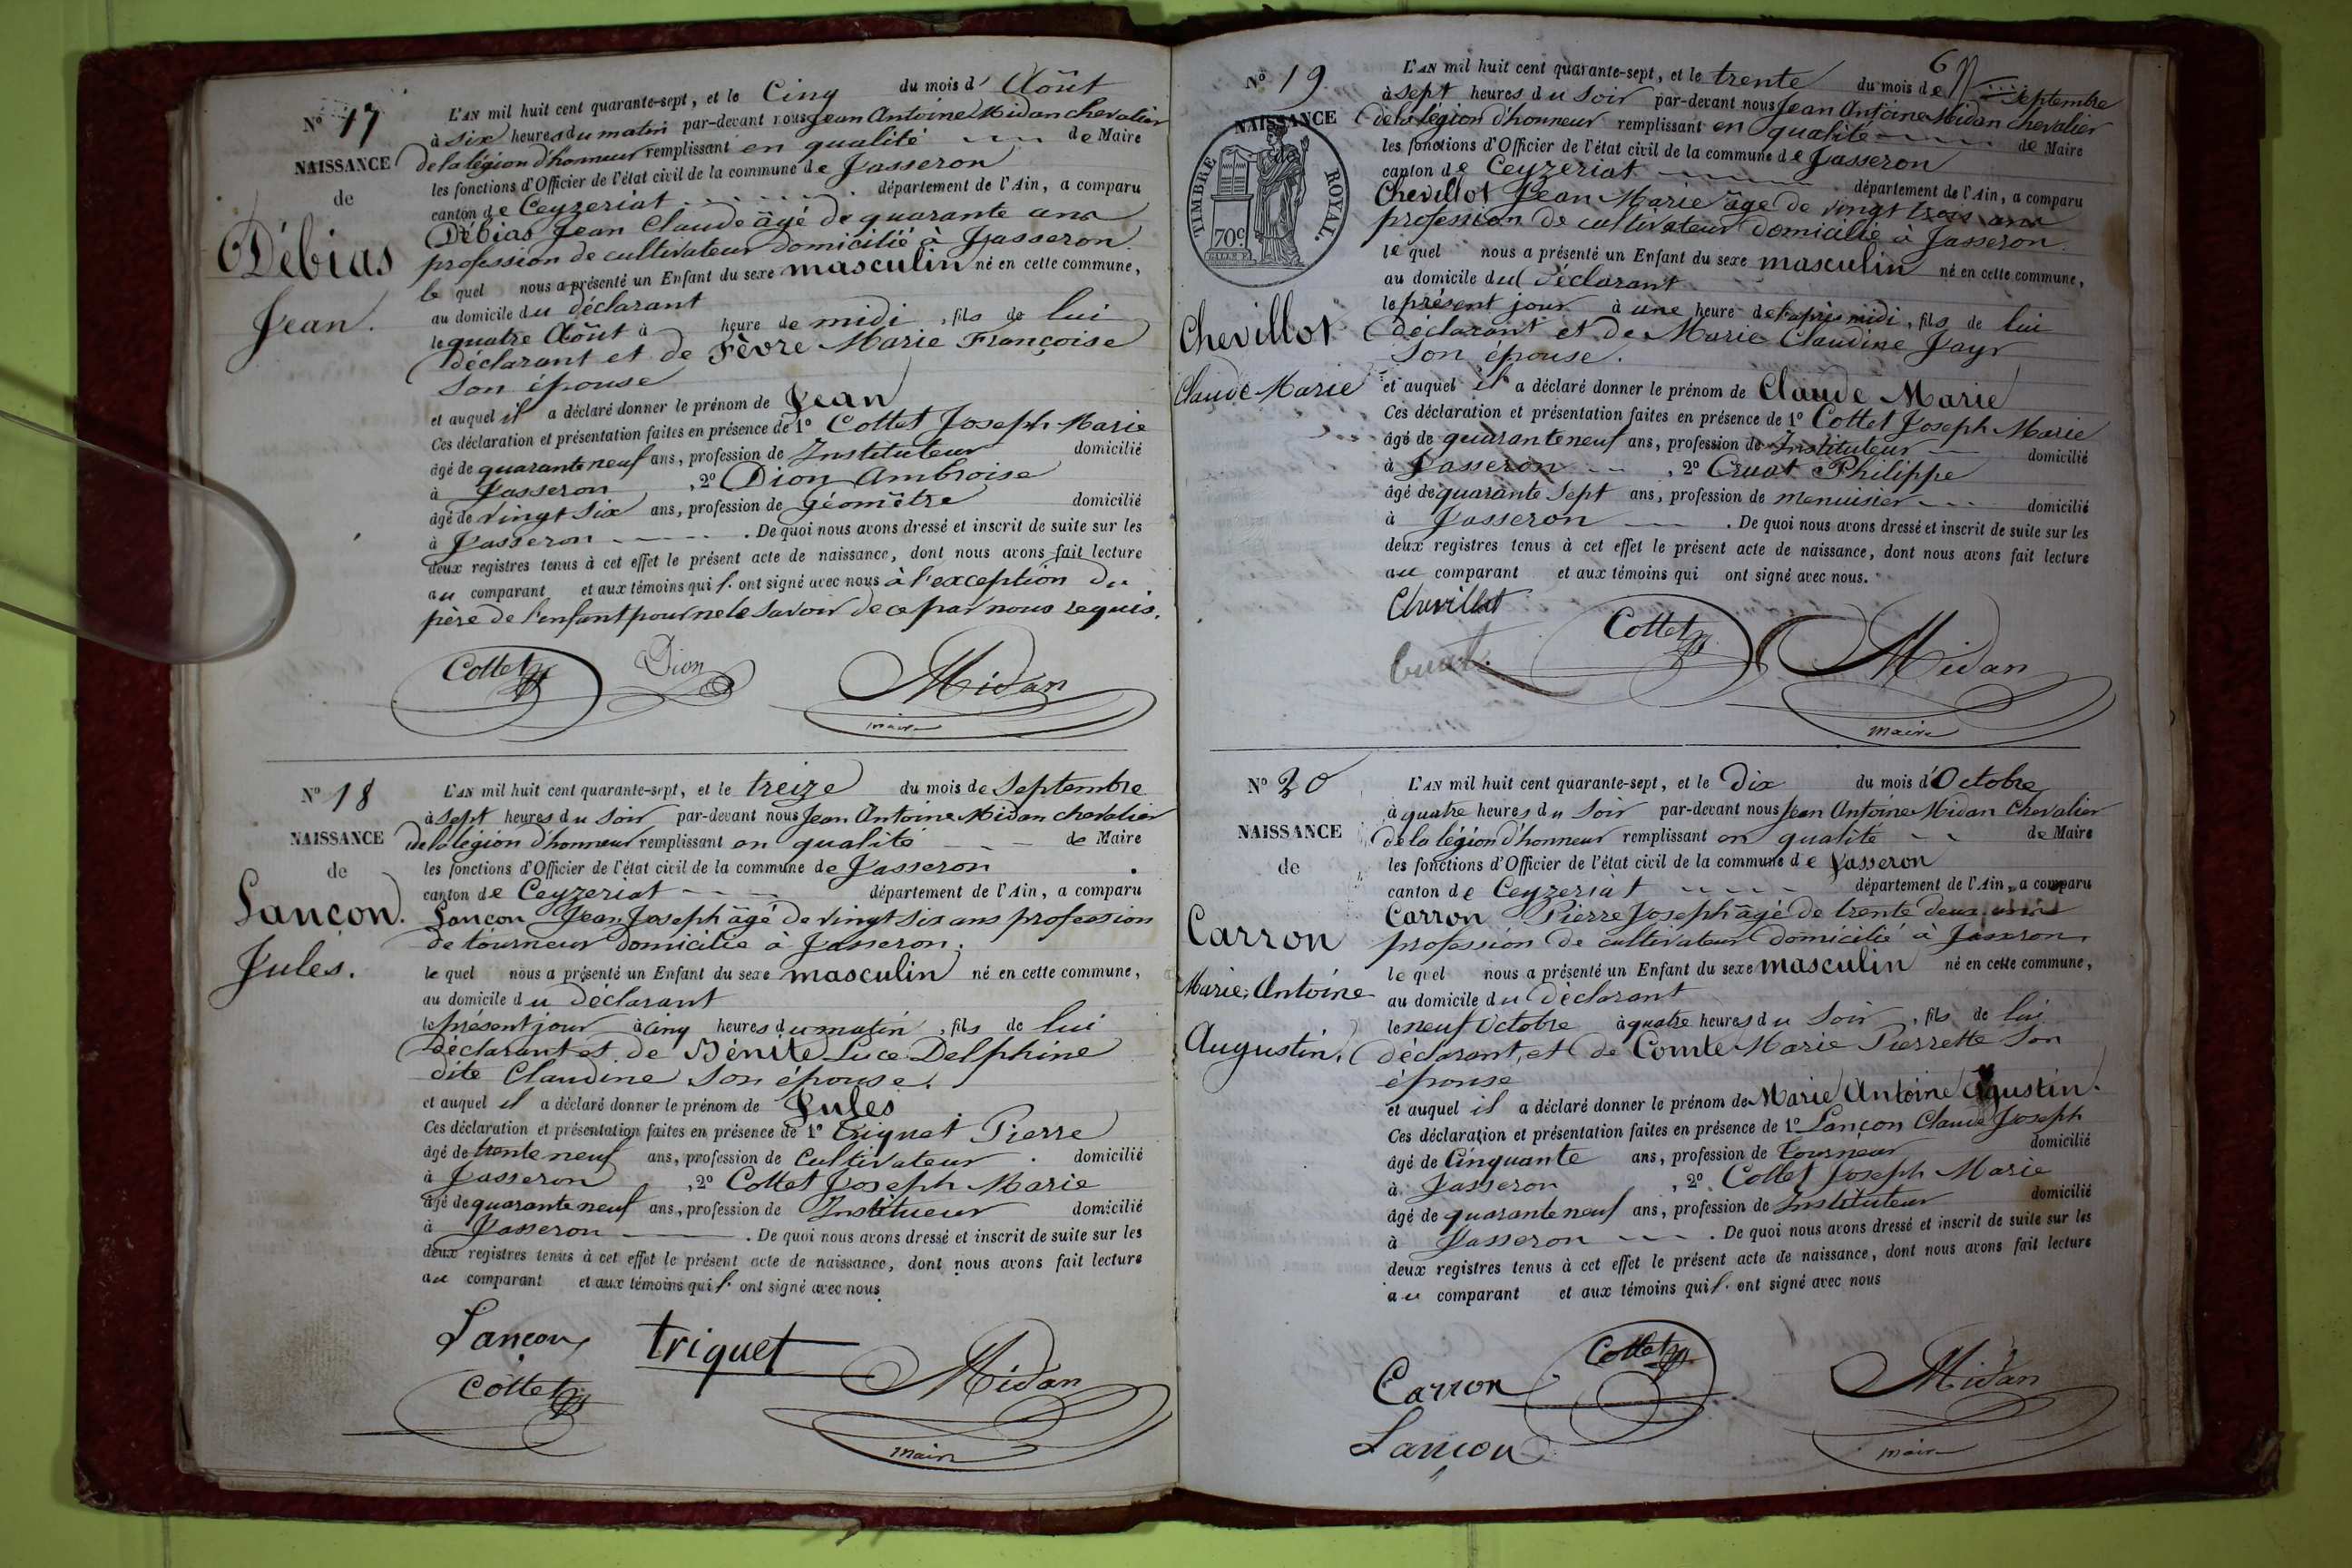 N° 17
NAISSANCE
de
Débias
Jean.
L'AN mil huit cent quarante-sept, et le Cinq du mois d' Août
à six heures du matin par-devant nous Jean Antoine Midan chevalier
de la légion d'honneur remplissant en qualité de Maire
les fonctions d'Officier de l'état civil de la commune de Jasseron
canton de Ceyzeriat département de l'Ain, a comparu
Débias Jean Claude âgé de quarante ans
profession de cultivateur domicilié à Jasseron.
le quel nous a présenté un Enfant du sexe masculin né en cette commune,
au domicile du déclarant
le quatre Août à heure de midi, fils de lui
déclarant et de Fèvre Marie Françoise
son épouse
et auquel il a déclaré donner le prénom de Jean
Ces déclaration et présentation faites en présence de 1° Cottet Joseph Marie
âgé de quarante neuf ans, profession de Instituteur domicilié
à Jasseron, 2° Dion Ambroise
âgé de vingt six ans, profession de géomètre domicilié
à Jasseron. De quoi nous avons dressé et inscrit de suite sur les
deux registres tenus à cet effet le présent acte de naissance, dont nous avons fait lecture
au comparant et aux témoins qui l. ont signé avec nous à l'exception du
père de l'enfant pour ne le savoir de ce par nous requis.
Cottet Dion Midan
maire
N° 18
NAISSANCE
de
Lançon.
Jules.
L'AN mil huit cent quarante-sept, et le treize du mois de Septembre
à sept heures du soir par-devant nous Jean Antoine Midan chevalier
de la légion d'honneur remplissant en qualité de Maire
les fonctions d'Officier de l'état civil de la commune de Jasseron
canton de Ceyzeriat département de l'Ain, a comparu
Lançon Jean Joseph âgé de vingt six ans profession
de tourneur domicilié à Jasseron.
le quel nous a présenté un Enfant du sexe masculin né en cette commune,
au domicile du déclarant
le présent jour à cinq heures du matin, fils de lui
déclarant et de Bénite Luce Delphine
dite Claudine son épouse.
et auquel il a déclaré donner le prénom de Jules
Ces déclaration et présentation faites en présence de 1° triquet Pierre
âgé de trente neuf ans, profession de Cultivateur domicilié
à Jasseron, 2° Cottet Joseph Marie
âgé de quarante neuf ans, profession de Institueur domicilié
à Jasseron. De quoi nous avons dressé et inscrit de suite sur les
deux registres tenus à cet effet le présent acte de naissance, dont nous avons fait lecture
au comparant et aux témoins qui l. ont signé avec nous
Lançon triquet
Cottet Midan
maire
6
N° 19
NAISSANCE
de
TIMBRE ROYAL.
70c
Chevillot
Claude Marie
L'AN mil huit cent quarante-sept, et le trente du mois de Septembre
à sept heures du soir par-devant nous Jean Antoine Midan chevalier
de la légion d'honneur remplissant en qualité de Maire
les fonctions d'Officier de l'état civil de la commune de Jasseron
canton de Ceyzeriat département de l'Ain, a comparu
Chevillot Jean Marie âgé de vingt trois ans
profession de cultivateur domicilié à Jasseron.
le quel nous a présenté un Enfant du sexe masculin né en cette commune,
au domicile dud déclarant
le présent jour à une heure de l'après midi, fils de lui
déclarant et de Marie Claudine Jayr
son épouse.
et auquel il a déclaré donner le prénom de Claude Marie
Ces déclaration et présentation faites en présence de 1° Cottet Joseph Marie
âgé de quarante neuf ans, profession de Instituteur domicilié
à Jasseron, 2° Cruat Philippe
âgé de quarante sept ans, profession de menuisier domicilié
à Jasseron. De quoi nous avons dressé et inscrit de suite sur les
deux registres tenus à cet effet le présent acte de naissance, dont nous avons fait lecture
au comparant et aux témoins qui ont signé avec nous.
Chevillot
Cottet Midan
maire
N° 20
NAISSANCE
de
Carron
Marie Antoine
Augustin.
L'AN mil huit cent quarante-sept, et le Dix du mois d'Octobre
à quatre heures du soir par-devant nous Jean Antoine Midan Chevalier
de la légion d'honneur remplissant en qualité de Maire
les fonctions d'Officier de l'état civil de la commune de Jasseron
canton de Ceyzeriat département de l'Ain, a comparu
Carron Pierre Joseph âgé de trente deux ans
profession de cultivateur domicilié à Jasseron.
le quel nous a présenté un Enfant du sexe masculin né en cette commune,
au domicile du déclarant
le neuf Octobre à quatre heures du soir, fils de lui
déclarant, et de Comte Marie Pierrette son
épouse
et auquel il a déclaré donner le prénom de Marie Antoine Agustin.
Ces déclaration et présentation faites en présence de 1° Lançon Claude Joseph
âgé de Cinquante ans, profession de tourneur domicilié
à Jasseron, 2° Cottet Joseph Marie
âgé de quarante neuf ans, profession de Instituteur domicilié
à Jasseron. De quoi nous avons dressé et inscrit de suite sur les
deux registres tenus à cet effet le présent acte de naissance, dont nous avons fait lecture
au comparant et aux témoins qui l. ont signé avec nous
Carron Cottet Midan
Lançon maire